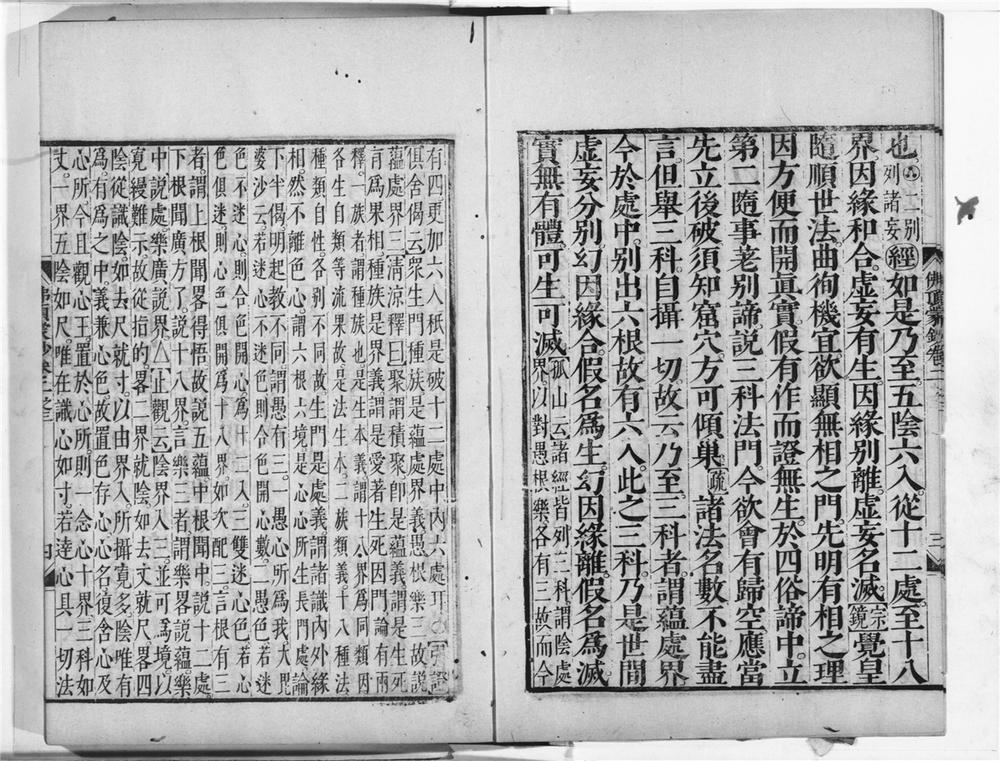 也。㊇二別列諸妄㊣經如是乃至五陰六入。從十二處。至十八
界因緣和合。虛妄有生。因緣別離。虛妄名滅。宗鏡覺皇
隨順世法。曲徇機宜。欲顯無相之門。先明有相之理
因方便而開眞實。假有作而證無生。於四俗諦中。立
第二隨事差別諦。說三科法門。今欲會有歸空。應當
先立後破。須知窟穴。方可傾巢。疏諸法名數不能盡
言。但舉三科。自攝一切。故云乃至。三科者。謂蘊處界
今於處中。別出六根。故有六入。此之三科。乃是世間
虛妄分別。幻因緣合。假名爲生。幻因緣離。假名爲滅
實無有體。可生可滅
孤山云。諸經皆列三科。謂陰處
界。以對愚根樂各有三。故而今
佛頂蒙鈔卷二之三 三
有四更加六入秖是破十二處中內六處耳○引證
俱舍偈云。眾生門種族。是蘊處界義。愚根樂三故。說
蘊處界三。清涼釋曰。聚謂積聚。即是蘊義。謂是生死
有爲果相。種族是界義。謂是愛著生死因。門論有兩
釋。一族者。謂種族也。是生本義。謂十八界同類因
各生自類等流果故。是法生本。二族類義。十八種法
種類自性。各別不同故。生門是處義。謂諸識內外緣
相。然不離色心。謂六根六境。是心心所生長門處。論
下半偈。明起教不同。謂愚有三。一愚心所爲我。大毘
婆沙云。若迷心。不迷色。則合色開心數。二愚色。若迷
色不迷心。則合心開色爲十二入。三雙迷心色。若心
色俱迷。則心色俱開。爲十八界。如次配三。言根有三
者。謂上根聞畧得悟。故說五蘊。中根聞中。說十二處
下根聞廣方了。說十八界。言樂三者。謂樂畧說蘊。樂
中說處。樂廣說界。△止觀云。陰界入三。並可爲境。以
寬縵難示。故從指的。畧二界就陰。如去丈就尺。畧四
陰從識陰。如去尺就寸。以由界入所攝寬多。陰唯有
爲。有爲之中。義兼心色。故置色存心。心名復含心及
心所。今且觀心王。置於心所。則一念心。十界三科如
丈。一界五陰如尺。唯在識心如寸。若達心具一切法
佛頂蒙鈔卷二之三 四